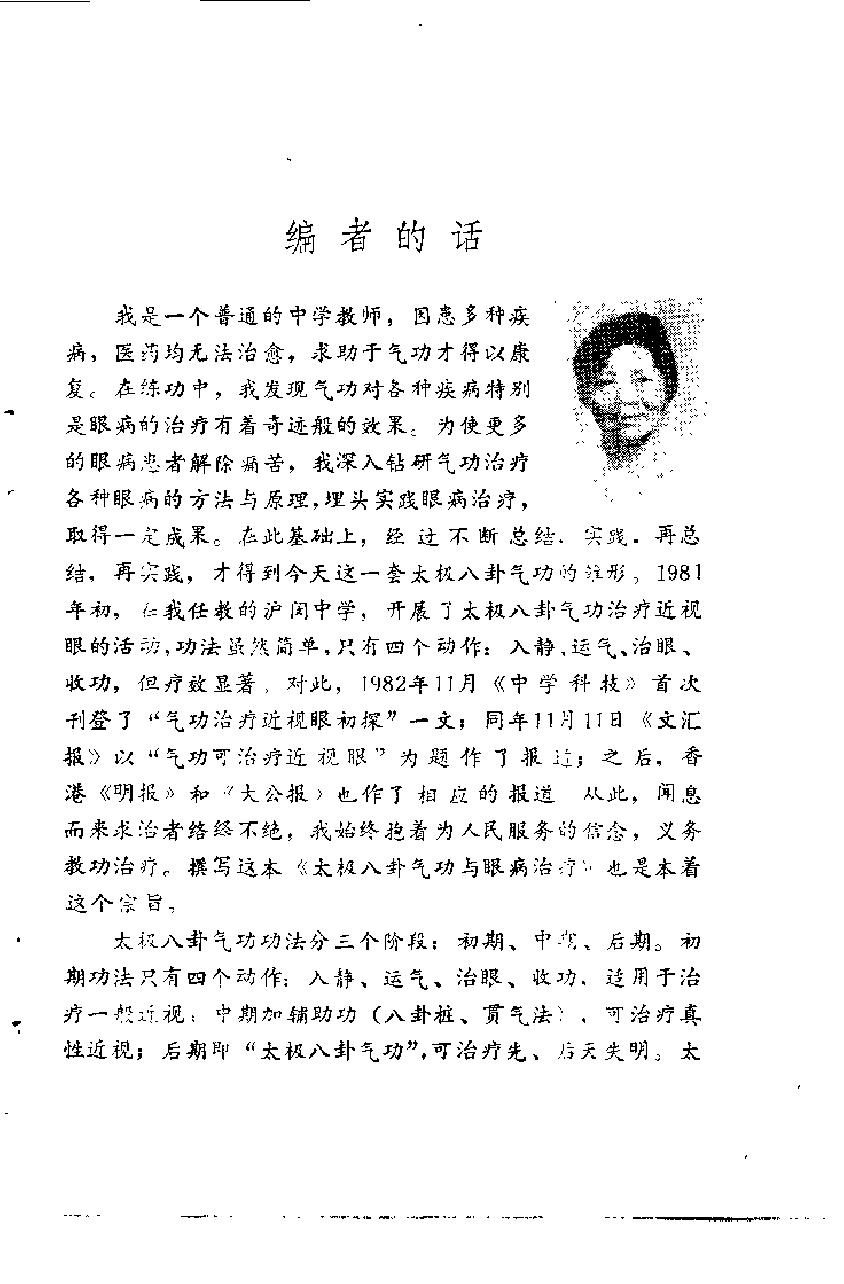 编者的话
我是一个普通的中学教师，因患多种疾
病，医药均无法治愈，求助于气功才得以康
复。在练功中，我发现气功对各种疾病特别
是眼病的治疗有着奇迹般的效果。为使更多
的眼病患者解除痛苦，我深入钻研气功治疗
各种眼病的方法与原理，埋头实践眼病治疗，
取得一定成果。在此基础上，经过不断总结．实践．再总
结．再实践，才得到今天这一套太极八卦气功的雏形。1981
年初，在我任教的沪闵中学，开展了太极八卦气功治疗近视
眼的活动，功法虽然简单，只有四个动作：入静、运气、治眼、
收功，但疗效显著。对此，1982年11月《中学科技》首次
刊登了“气功治疗近视眼初探”一文；同年11月11日《文汇
报》以“气功可治疗近视眼”为题作了报道；之后，香
港《明报》和《大公报》也作了相应的报道 从此，闻息
而来求治者络绎不绝，我始终抱着为人民服务的信念，义务
教功治疗。撰写这本《太极八卦气功与眼病治疗》也是本着
这个宗旨。
太极八卦气功功法分三个阶段：初期、中期、后期。初
期功法只有四个动作：入静、运气、治眼、收功．适用于治
疗一般近视；中期加辅助功（八卦桩、贯气法）．可治疗真
性近视；后期即“太极八卦气功”，可治疗先、后天失明。太